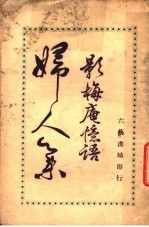 影梅庵憶語
婦人集
六藝書局印行